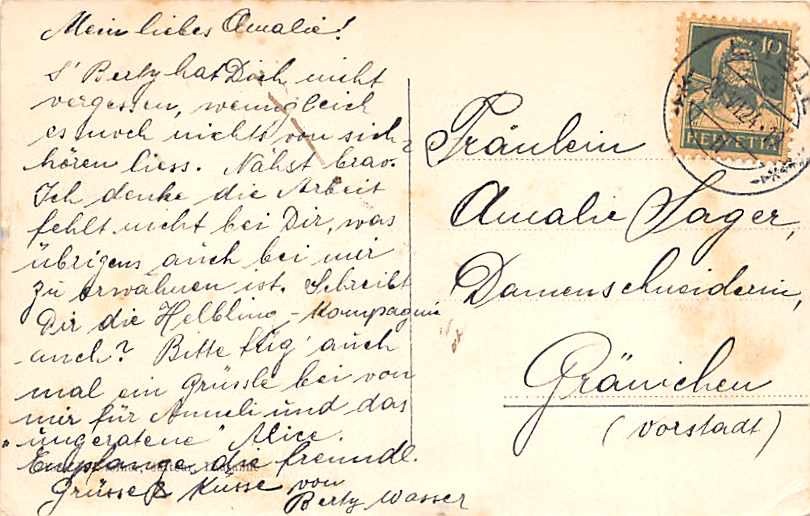 Mein liebes Amalie!
S' Berty hat Dich nicht
vergessen, wenngleich
es noch nichts von sich
hören liess. Nähst brav.
Ich denke die Arbeit
fehlt nicht bei Dir, was
übrigens auch bei mir
zu erwähnen ist. Schreibt
Dir die Helbling-Kompagnie
auch? Bitte füg' auch
mal ein Grüssle bei von
mir für Anneli und das
"ungeratene" Alice.
Empfange die freundl.
Grüsse & Küsse von
Berty Wasser
10
HELVETIA
Fräulein
Amalie Sager,
Damenschneiderin,
Gränichen
(Vorstadt)